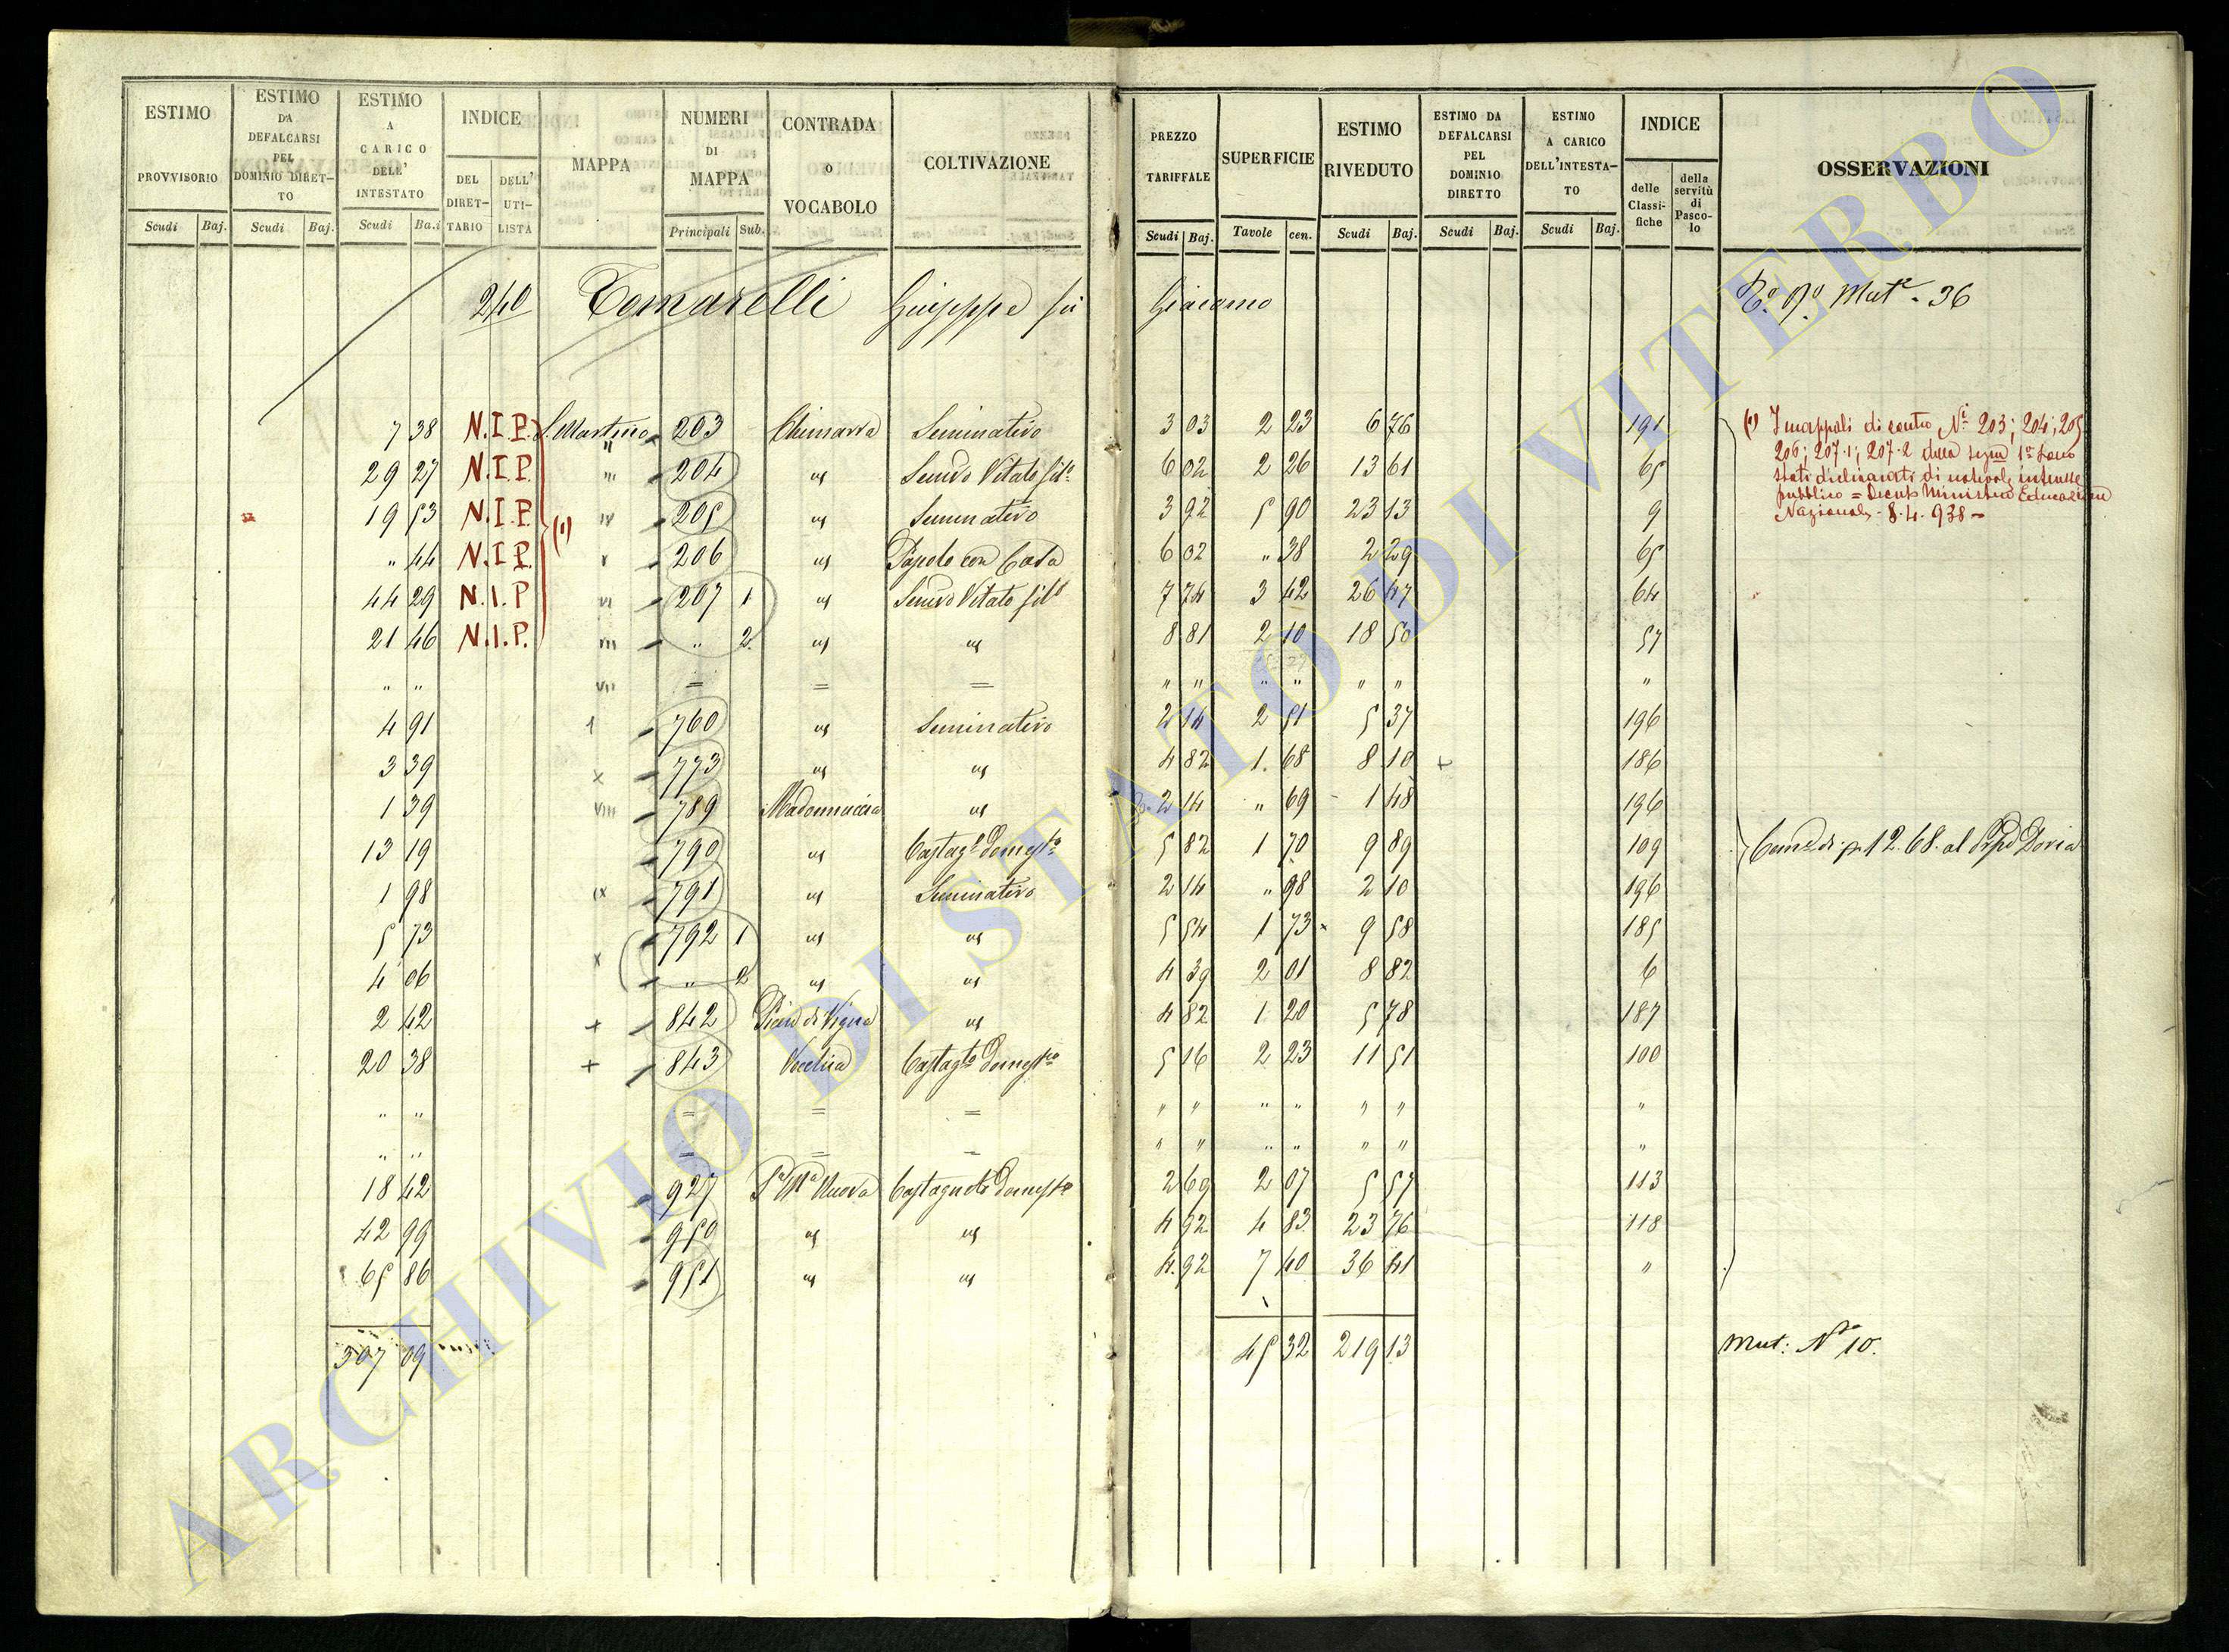 ESTIMO PROVVISORIO Scudi Baj.
ESTIMO DA DEFALCARSI PEL DOMINIO DIRET- TO Scudi Baj.
ESTIMO A CARICO DELL' INTESTATO Scudi Ba.i
INDICE DEL DIRET- TARIO DELL' UTI- LISTA
MAPPA
NUMERI DI MAPPA Principali Sub.
CONTRADA o VOCABOLO
COLTIVAZIONE
PREZZO TARIFFALE Scudi Baj.
SUPERFICIE Tavole cen.
ESTIMO RIVEDUTO Scudi Baj.
ESTIMO DA DEFALCARSI PEL DOMINIO DIRETTO Scudi Baj.
ESTIMO A CARICO DELL'INTESTA- TO Scudi Baj.
INDICE delle Classi- fiche della servitù di Pasco- lo
OSSERVAZIONI
240 Tomarelli Giuseppe fu Giacomo Mut.e 36
7 38 N.I.P. S. Martino 203 Chimarra Seminativo 3 03 2 23 6 76 191
29 27 N.I.P. 204 " Semivo Vitato 6 02 2 26 13 61 65
19 53 N.I.P. IV 205 " Seminativo 3 92 5 90 23 13 9
" 44 N.I.P. V 206 " con Casa 6 02 " 38 2 29 65
44 29 N.I.P VI 207 1 " Semivo Vitato 7 74 3 42 26 47 64
21 46 N.I.P. " 2 " " 8 81 2 10 18 50 57
" " VII = = = " " " " " " "
4 91 760 " Seminativo 2 14 2 51 5 37 196
3 39 x 773 " " 4 82 1 68 8 10 + 186
1 39 VIII 789 Madonnuccia " 2 14 " 69 1 48 196
13 19 790 " Castag.o Domest.o 5 82 1 70 9 89 109
1 98 IX 791 " Seminativo 2 14 " 98 2 10 196
5 73 x 792 1 " " 5 54 1 73 9 58 185
4 06 " 2 " " 4 39 2 01 8 82 6
2 42 + 842 Pian di Vigna " 4 82 1 20 5 78 187
20 38 + 843 Castag.to Domest.co 5 16 2 23 11 51 100
" " = = = " " " " " " "
" " = = = " " " " " " "
18 42 927 Nuova Castagneto Domest.o 2 69 2 07 5 57 113
42 99 950 " " 4 92 4 83 23 76 118
65 86 951 " " 4 92 7 40 36 41 "
307 09 45 32 219 13
(1)
(1) I mappali di contro N.i 203; 204; 205
206; 207.1; 207.2 della 1a sono
stati dichiarati di notevole interesse
pubblico = Decreto Ministero Educazione
Nazionale 8.4.938 =
12.68. al Doria
Mut: N.o 10.
ARCHIVIO DI STATO DI VITERBO